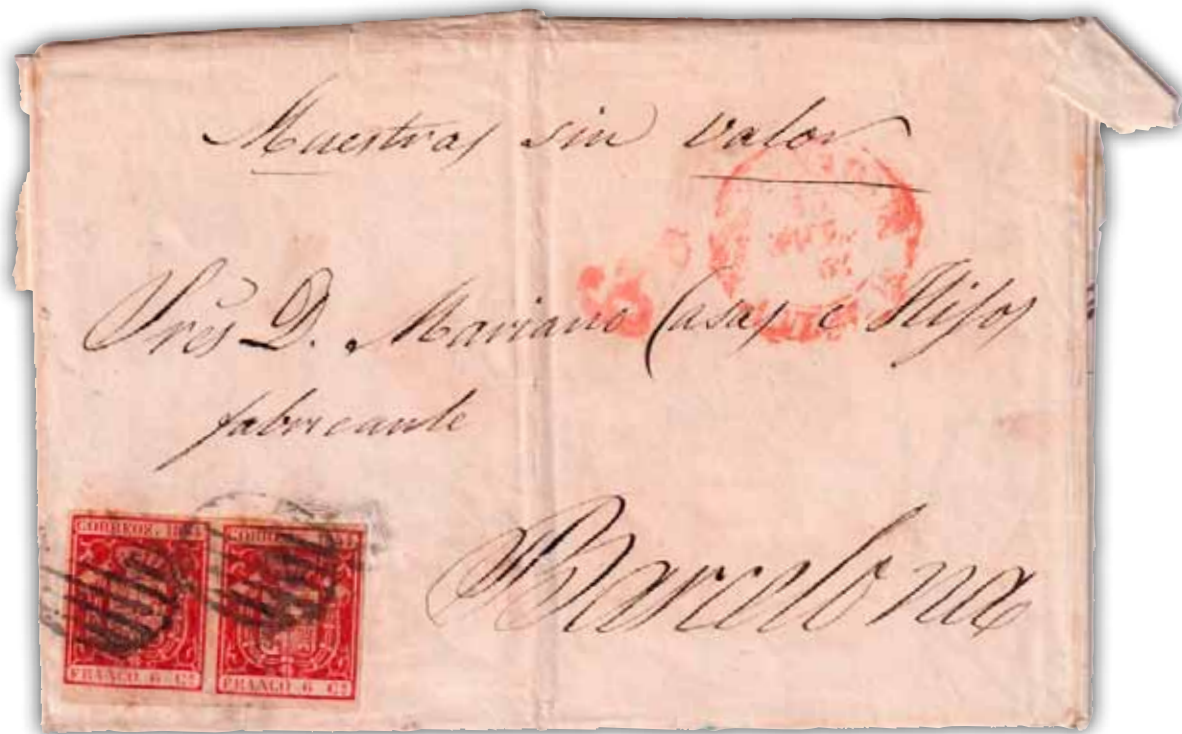 Muestras sin valor
Sres D. Mariano Casas e Hijos
fabricante
Barcelona
CORREOS. CORREOS.
FRANCO 6 Cs FRANCO 6 Cs